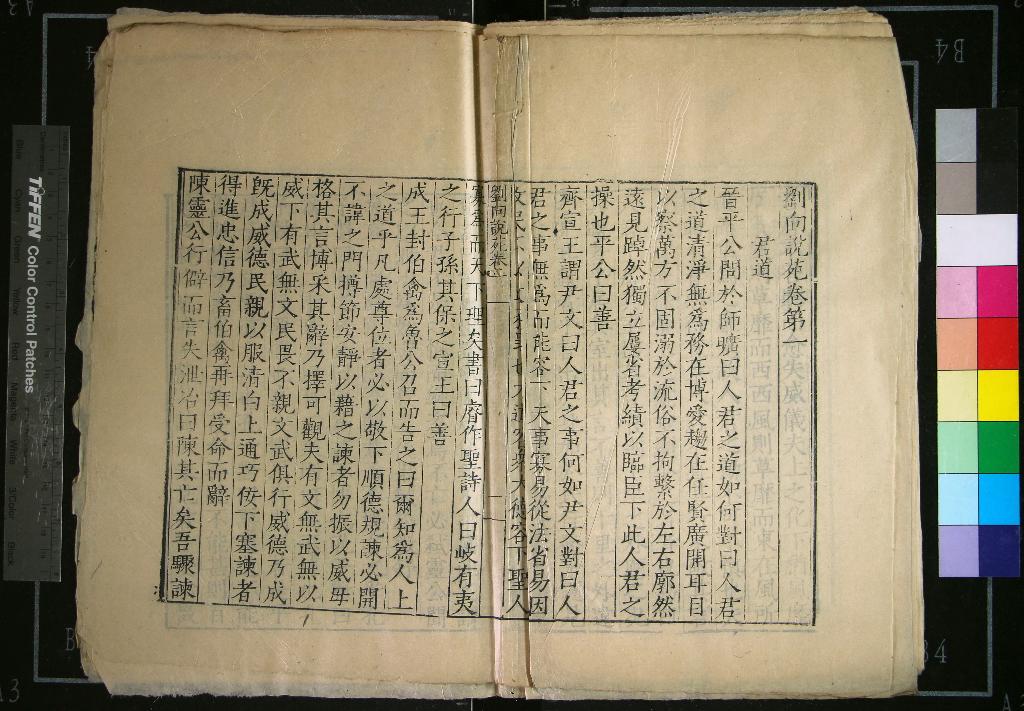 劉向說苑卷第一
君道
晉平公問於師曠曰人君之道如何對曰人君
之道清淨無爲務在博愛趨在任賢廣開耳目
以察萬方不固溺於流俗不拘繫於左右廓然
遠見踔然獨立屢省考績以臨臣下此人君之
操也平公曰善
齊宣王謂尹文曰人君之事何如尹文對曰人
君之事無爲而能容下夫事寡易從法省易因
故民不以 大德容下聖人
劉向說苑卷一
寡爲而天下理矣書曰睿作聖詩人曰岐有夷
之行子孫其保之宣王曰善
成王封伯禽爲魯公召而告之曰爾知爲人上
之道乎凡處尊位者必以敬下順德規諫必開
不諱之門撙節安靜以藉之諫者勿振以威毋
格其言博采其辭乃擇可觀夫有文無武無以
威下有武無文民畏不親文武俱行威德乃成
旣成威德民親以服清白上通巧佞下塞諫者
得進忠信乃畜伯禽再拜受命而辭
陳靈公行僻而言失泄冶曰陳其亡矣吾驟諫
TIFFEN Color Control Patches
B4
A3